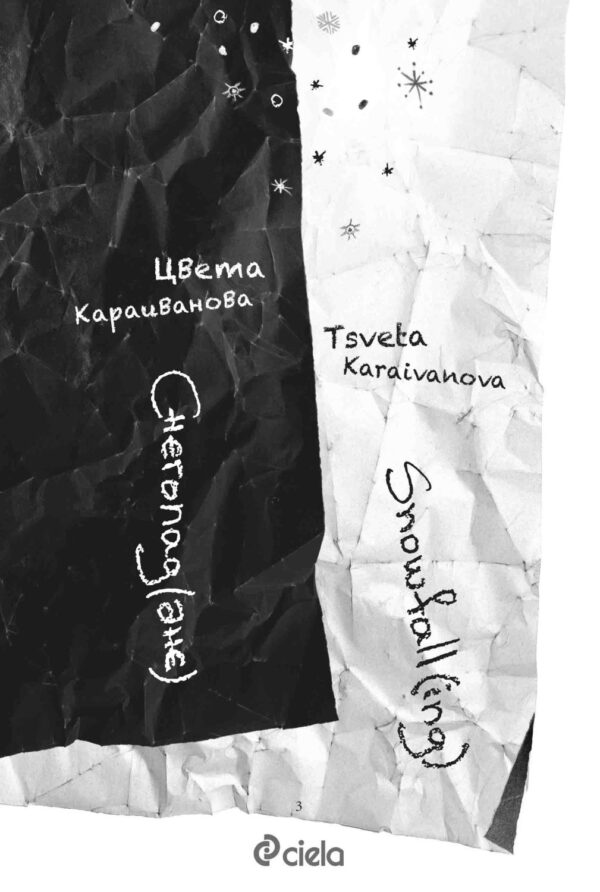 Цвета
Караиванова
Снегопад(ане)
Tsveta
Karaivanova
Snowfall(ing)
3
ciela